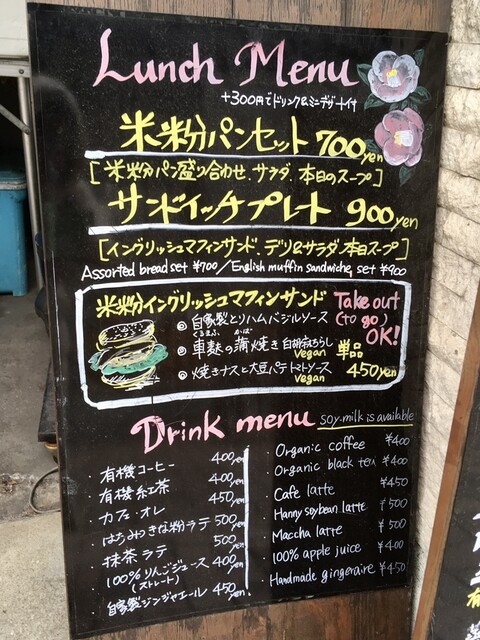 Lunch Menu
+300円でドリンク&ミニデザート付
米粉パンセット 700yen
[米粉パン盛り合わせ.サラダ.本日のスープ]
サンドイッチプレート 900yen
[イングリッシュマフィンサンド.デリ&サラダ.本日スープ]
Assorted bread set ¥700/English muffin sandwiche, set ¥900
米粉イングリッシュマフィンサンド
Take out
(to go)
OK!
◎ 自家製とりハムバジルソース
くるまふ かば
◎ 車麩の蒲焼き 白胡麻おろし
vegan
◎ 焼きナスと大豆パテ トマトソース
vegan
単品
450yen
Drink menu
soy-milk is available
・有機コーヒー 400yen
・有機紅茶 400yen
・カフェ・オレ 450yen
・はちみつきな粉ラテ 500yen
・抹茶ラテ 500yen
・100%りんごジュース 400yen
(ストレート)
・自家製ジンジャエール 450yen
・Organic coffee ¥400
・Organic black tea ¥400
・Cafe latte ¥450
・Hanny soybean latte ¥500
・Maccha latte ¥500
・100% apple juice ¥400
・Handmade gingeraire ¥450